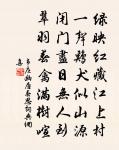 綠映紅藏江上村
一聲雞犬似山源
閉門盡日無人到
翠羽春禽滿樹喧